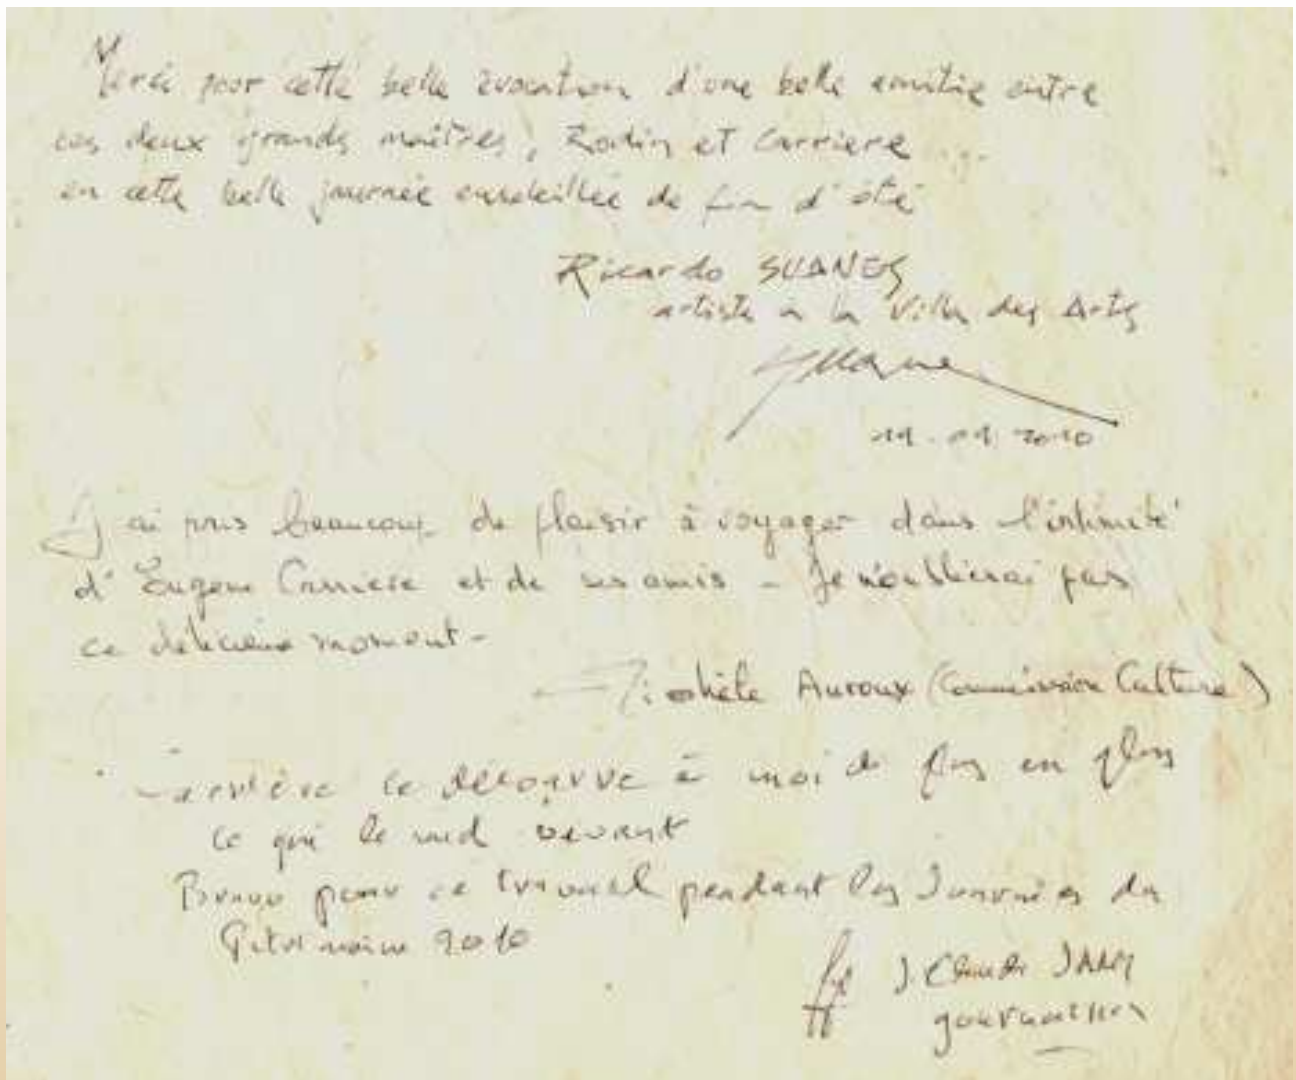 Merci pour cette belle évocation d'une belle amitié entre
ces deux grands maîtres, Rodin et Carriere...
en cette belle journée ensoleillée de fin d'été
Ricardo SUANES
artiste a la Villa des Arts
2010
J'ai pris beaucoup de plaisir à voyager dans l'intimité
d'Eugène Carrière et de ses amis - Je n'oublierai pas
ce délicieux moment -
Michèle Auroux (Commission Culture)
Carrière ce découvre à moi de plus en plus
ce qui le rend vivant
Bravo pour ce travail pendant les Journées du
Patrimoine 2010
J. Claude